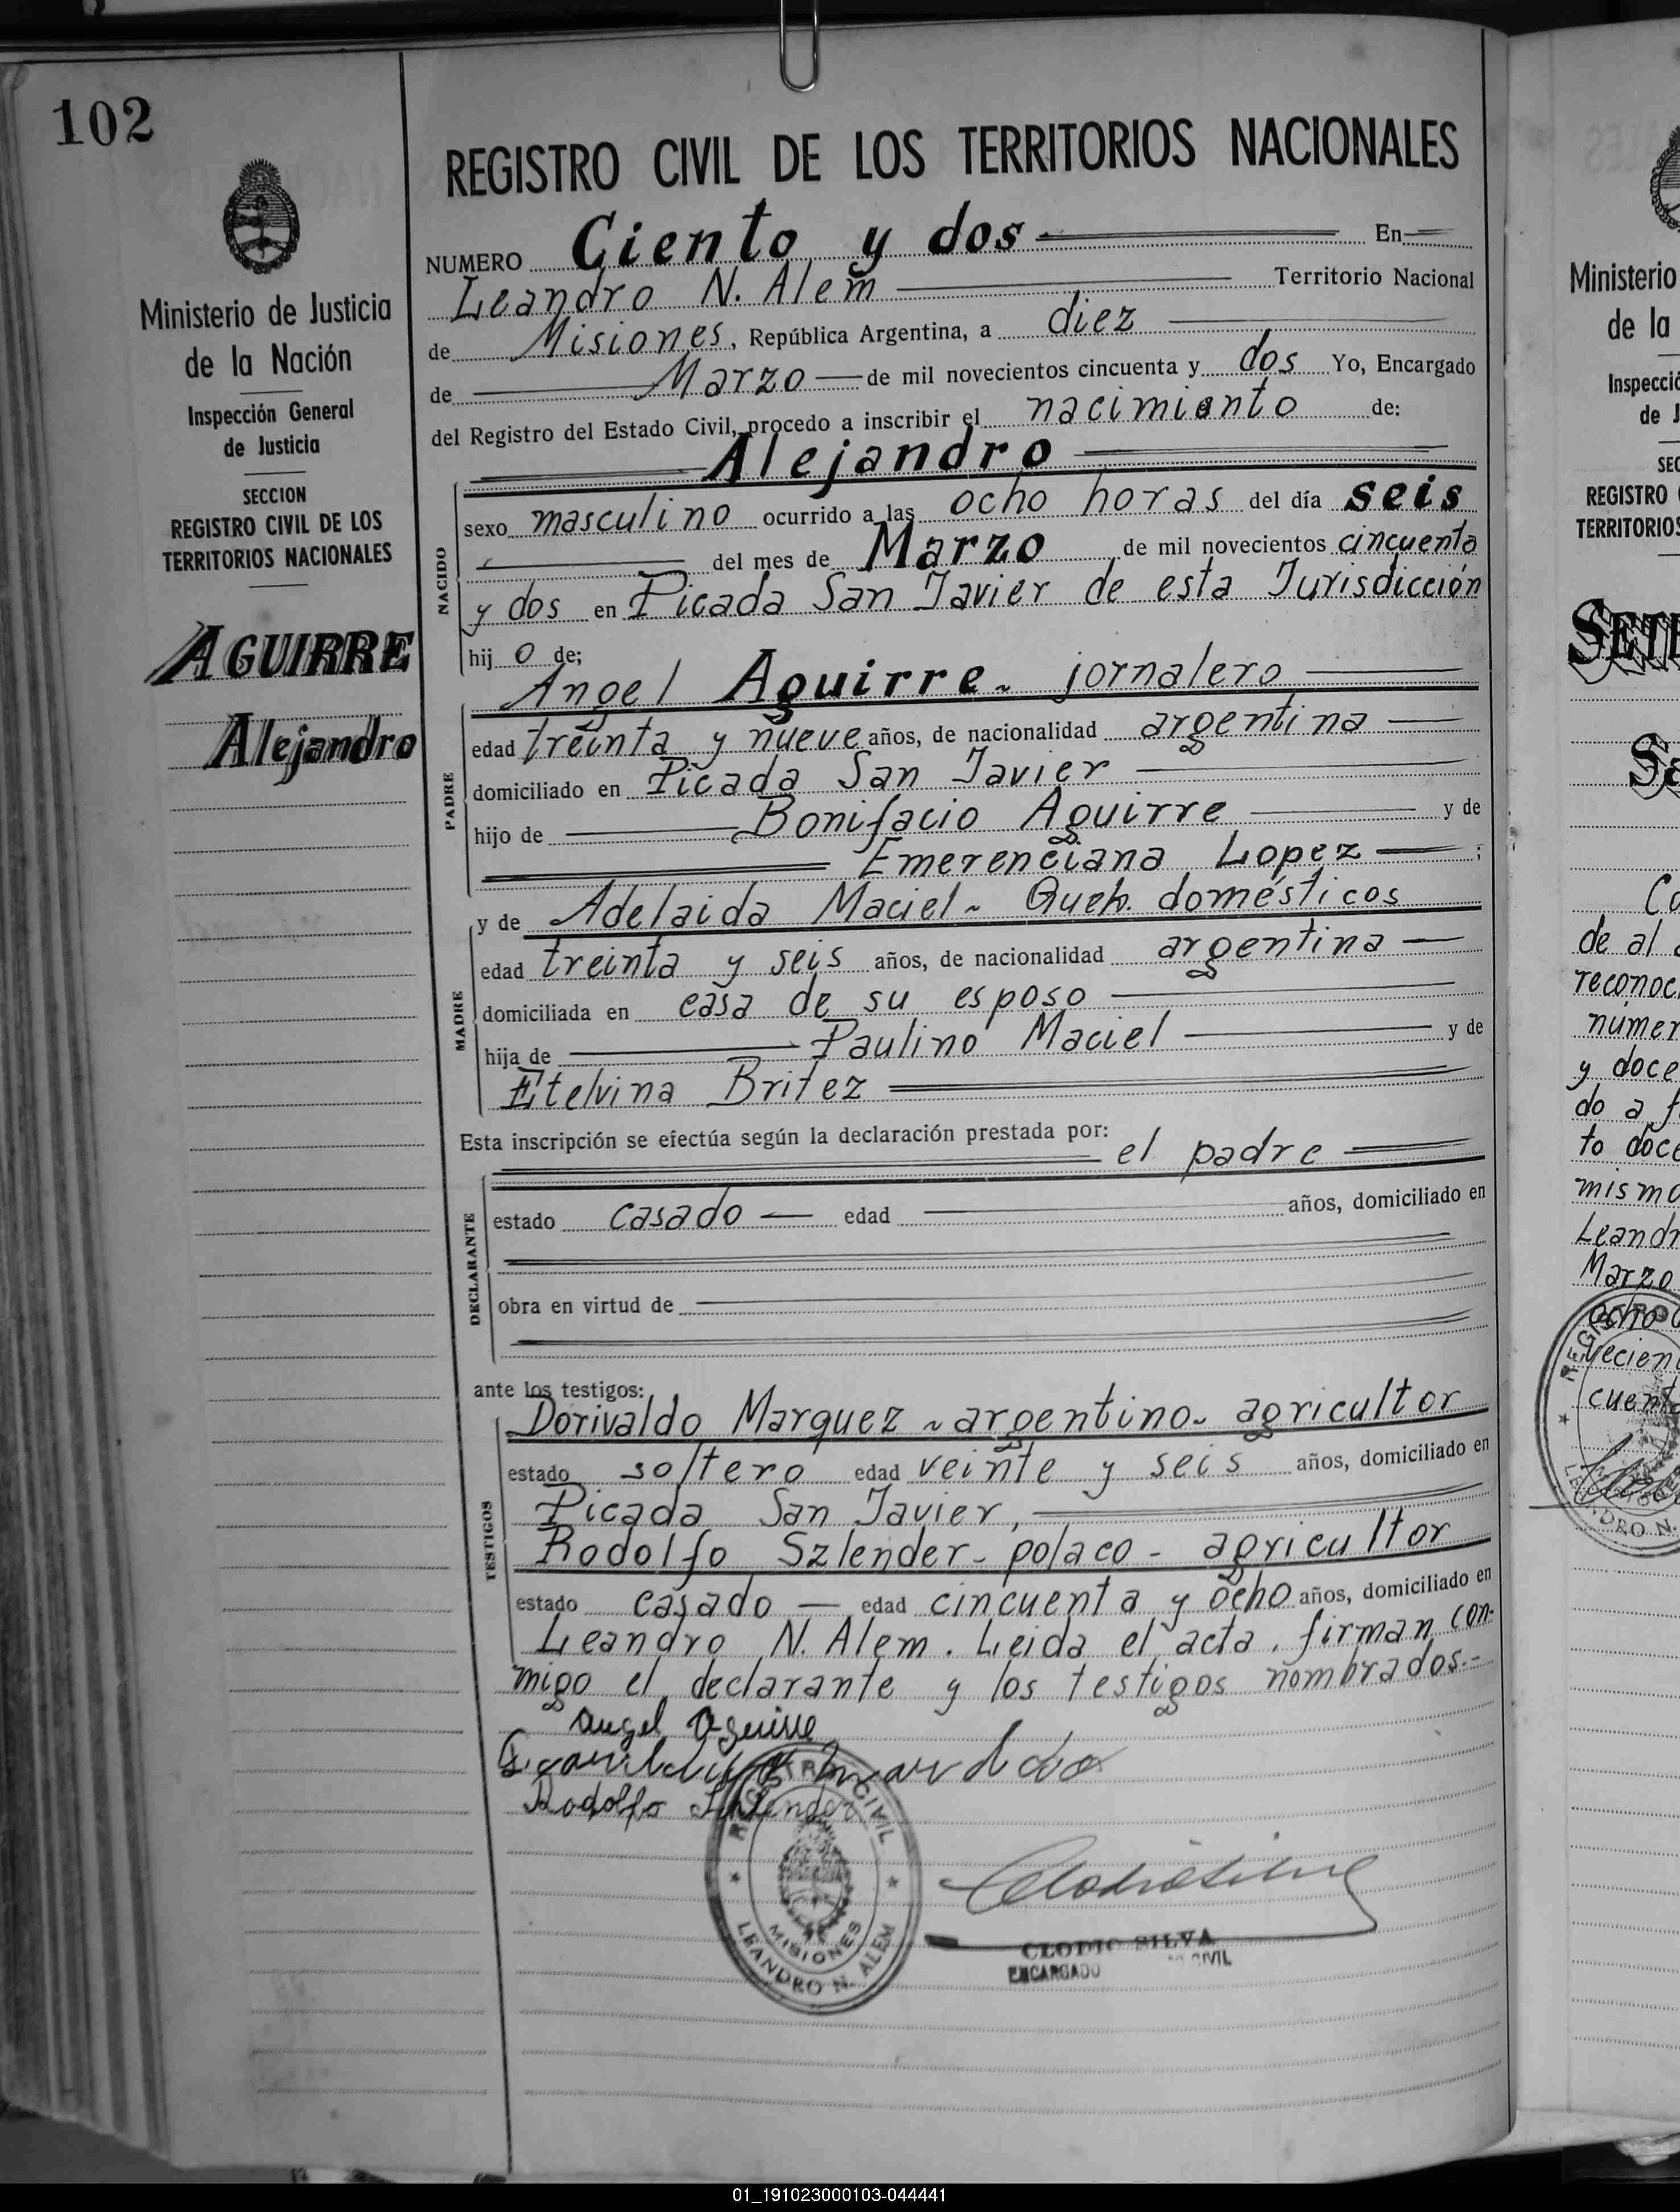 102
Ministerio de Justicia
de la Nación
Inspección General
de Justicia
SECCION
REGISTRO CIVIL DE LOS
TERRITORIOS NACIONALES
AGUIRRE
Alejandro
REGISTRO CIVIL DE LOS TERRITORIOS NACIONALES
NUMERO Ciento y dos En
Leandro N. Alem Territorio Nacional
de Misiones, República Argentina, a diez
de Marzo de mil novecientos cincuenta y dos Yo, Encargado
del Registro del Estado Civil, procedo a inscribir el nacimiento de:
Alejandro
NACIDO
sexo masculino ocurrido a las ocho horas del día seis
del mes de Marzo de mil novecientos cincuenta
y dos en Picada San Javier de esta Jurisdicción
hij o de;
Angel Aguirre - jornalero
PADRE
edad treinta y nueve años, de nacionalidad argentina
domiciliado en Picada San Javier
hijo de Bonifacio Aguirre y de
Emerenciana Lopez ;
y de Adelaida Maciel - Queh. domésticos
MADRE
edad treinta y seis años, de nacionalidad argentina
domiciliada en casa de su esposo
hija de Paulino Maciel y de
Etelvina Britez
Esta inscripción se efectúa según la declaración prestada por:
el padre
DECLARANTE
estado casado edad años, domiciliado en
obra en virtud de
ante los testigos:
Dorivaldo Marquez - argentino - agricultor
TESTIGOS
estado soltero edad veinte y seis años, domiciliado en
Picada San Javier,
Rodolfo Szlender - polaco - agricultor
estado casado edad cincuenta y ocho años, domiciliado en
Leandro N. Alem. Leida el acta, firman con-
migo el declarante y los testigos nombrados.-
Angel Aguirre
Rodolfo Szlender
REGISTRO CIVIL
MISIONES
LEANDRO N. ALEM
CLODIO SILVA
ENCARGADO CIVIL
Ministerio
de la
REGISTRO
TERRITORIOS
de al
reconoc
númer
y doce
do a f
to doce
mismo
Leandr
Marzo
ocho
vecien
cuenta
01_191023000103-044441